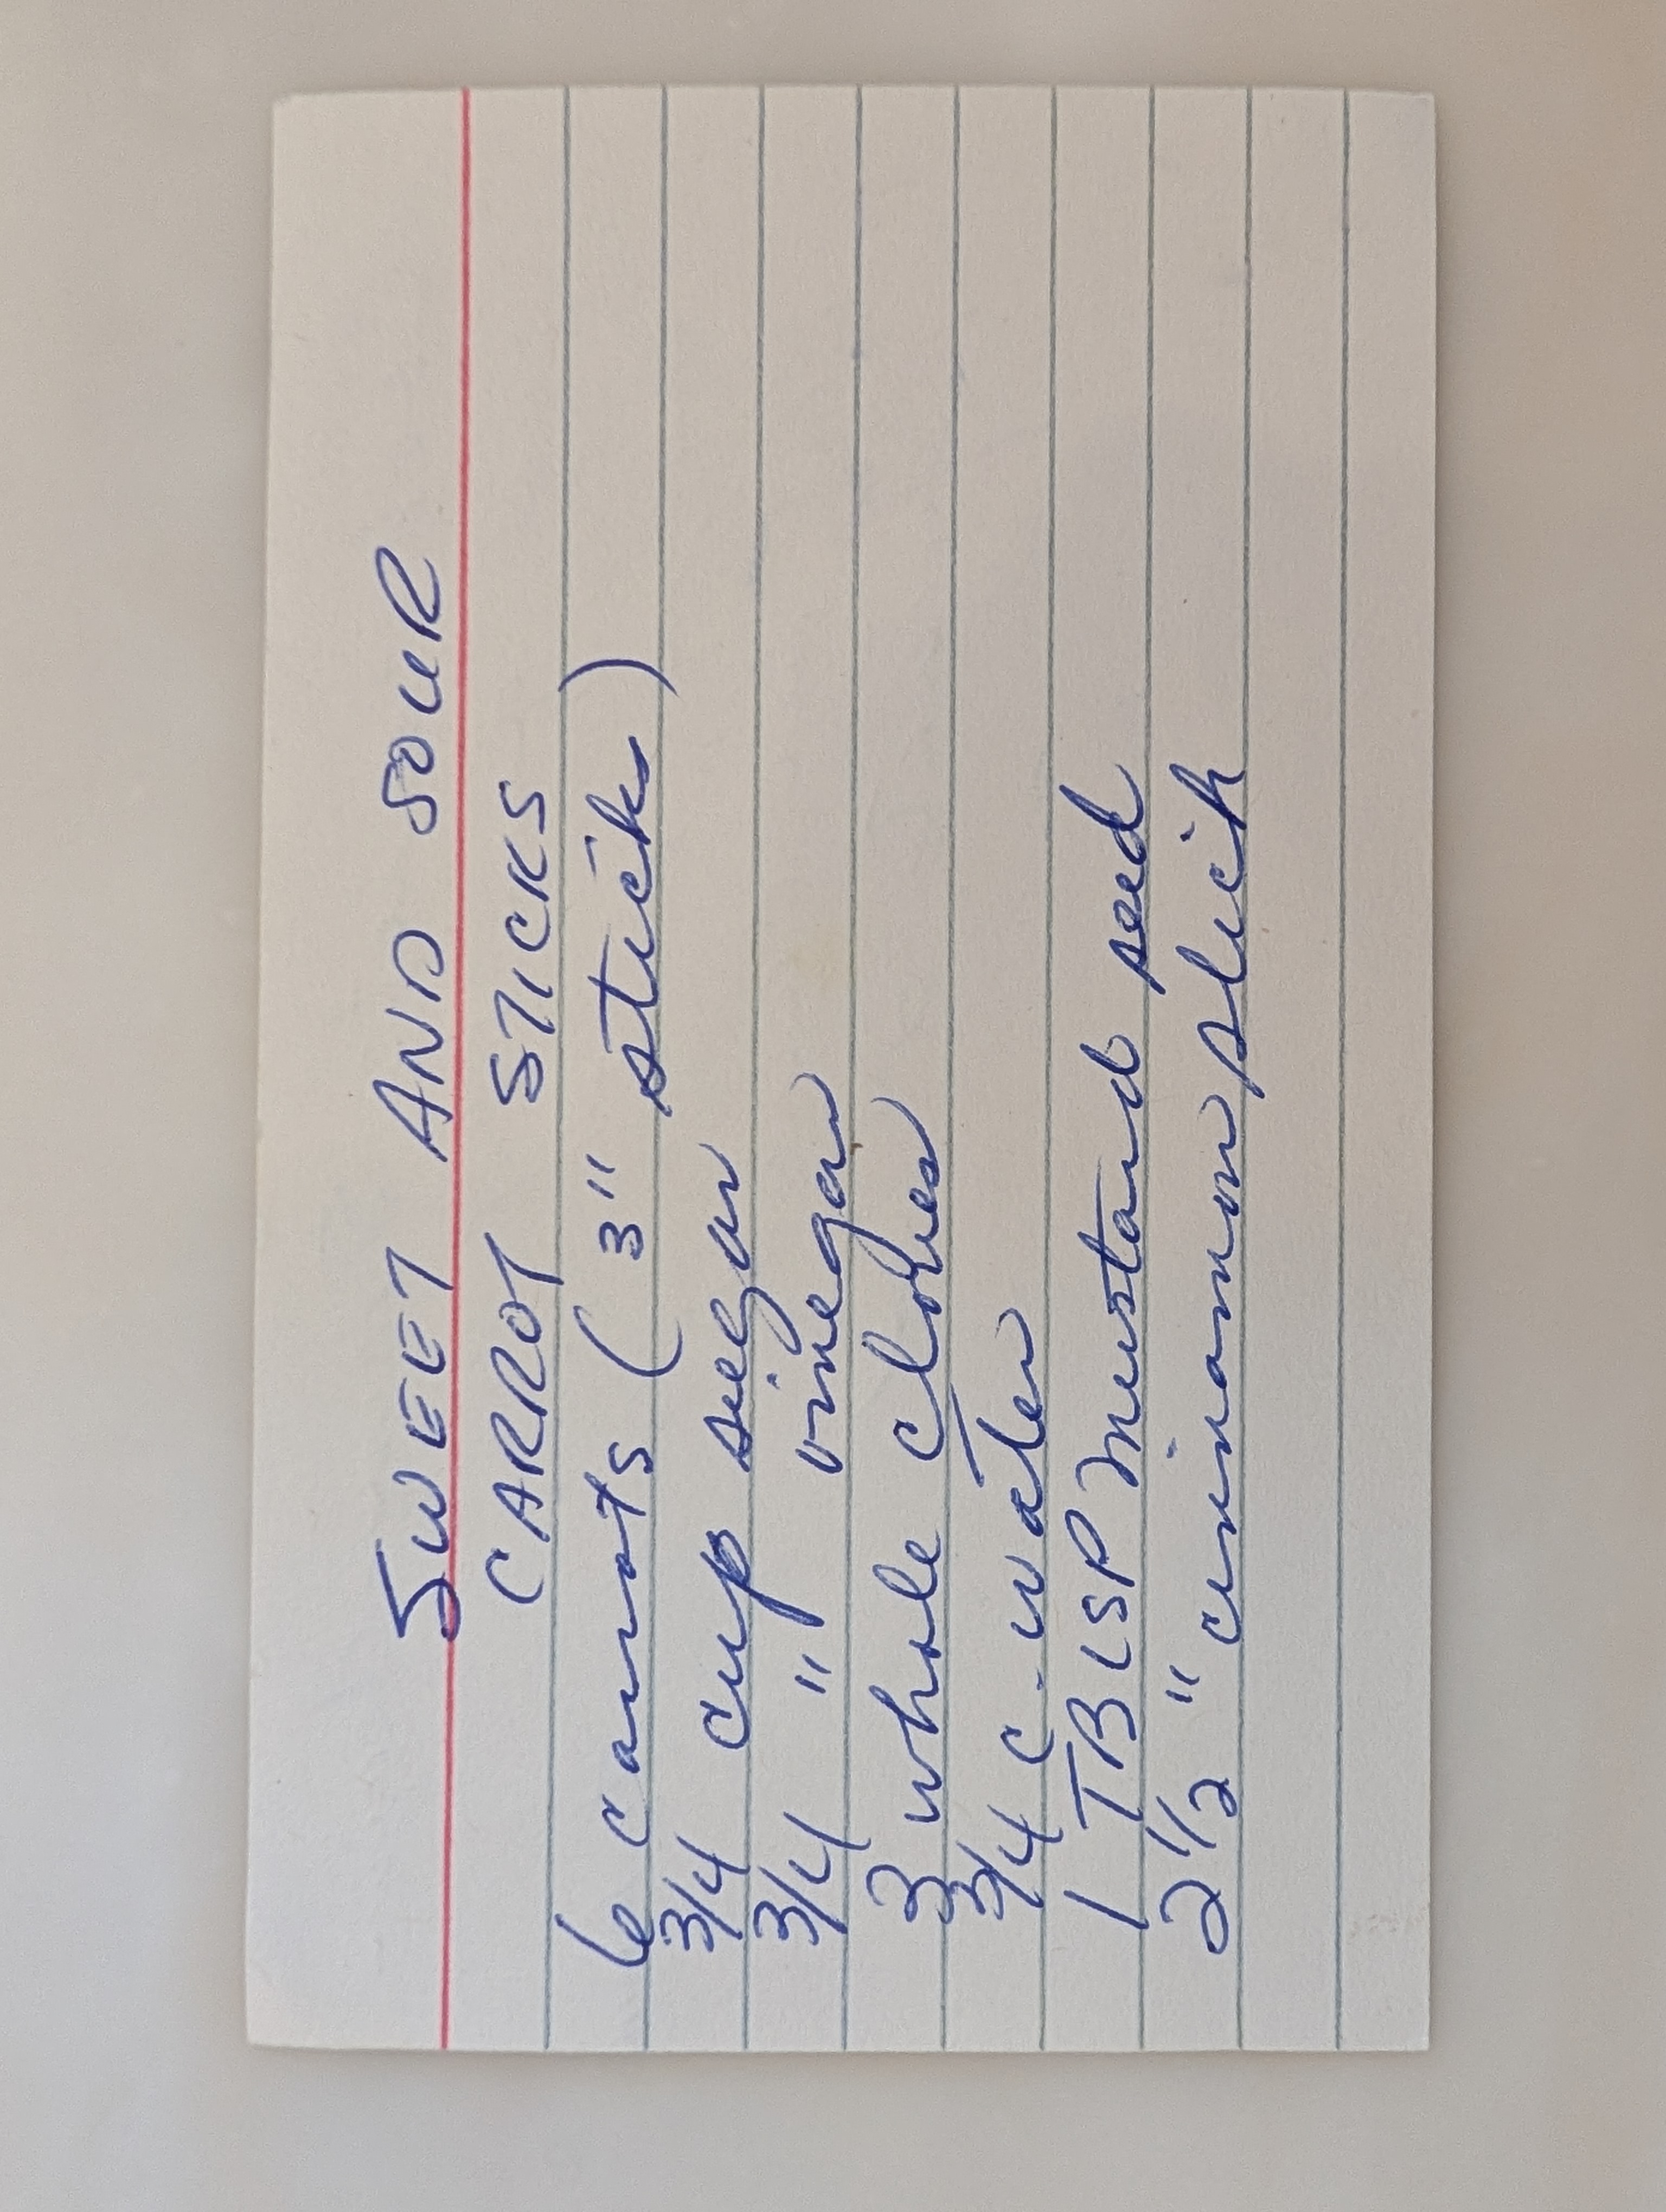 SWEET AND SOUR
CARROT STICKS
6 carrots (3" sticks)
3/4 cup sugar
3/4 " vinegar
3 whole cloves
3/4 c. water
1 TBLSP mustard seed
2 1/2 " cinnamon stick